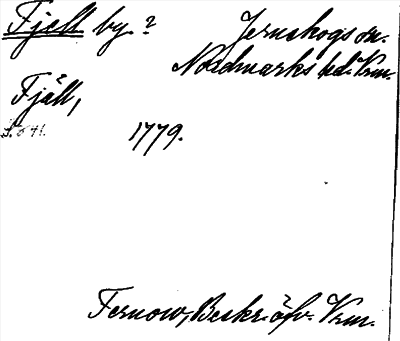 Fjell by.? Jernskogs sn.
Nordmarks hd. Vrm.
Fjäll,
S. 641. 1779.
Fernow, Beskr. öfv. Vrm.